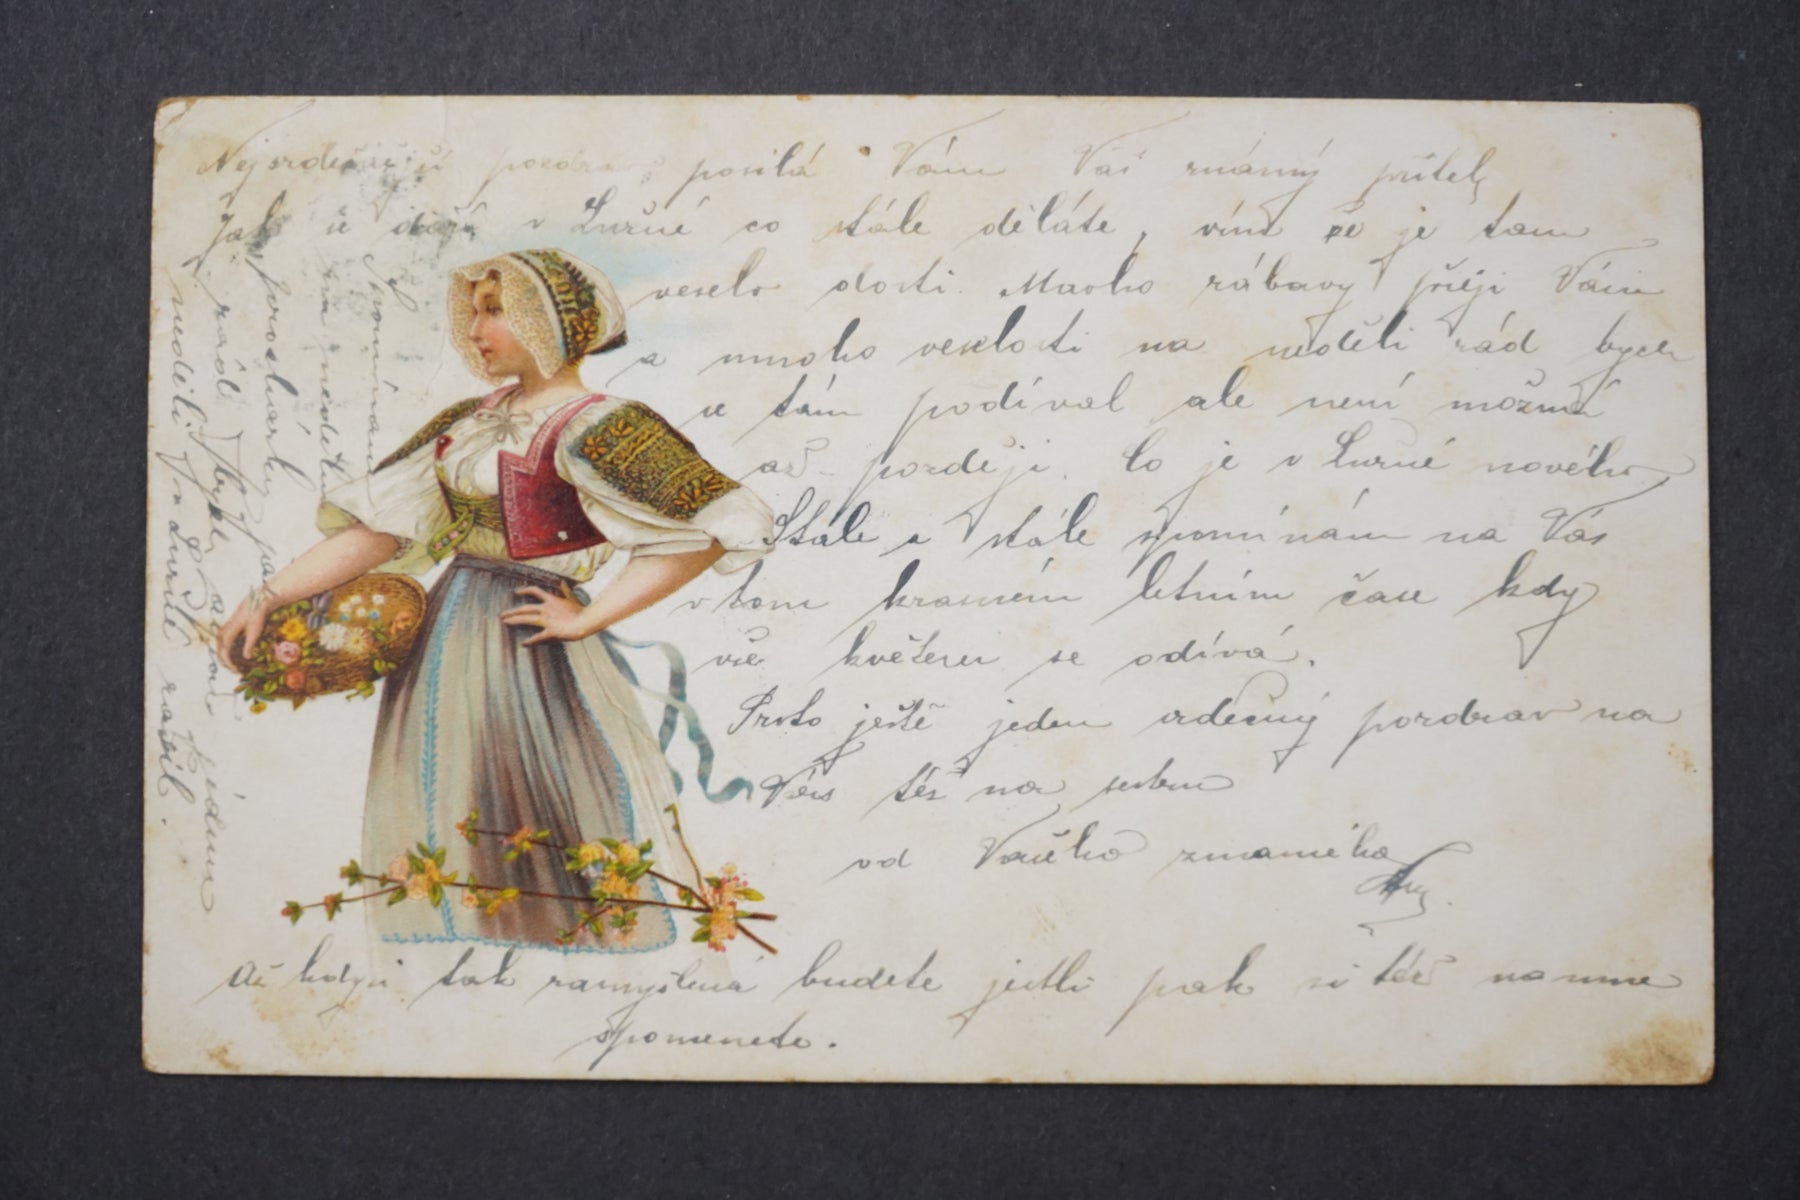 Nejsrdečnější pozdrav posílá Vám Váš známý přítel,
Jak se daří v Lužné co stále děláte, vím že je tam
veselo dosti. Mnoho zábavy přeji Vám
a mnoho veselosti na neděli rád bych
se tám podíval ale není možná
až pozdeji. Co je v Lužné nového
Stále a stále spomínám na Vás
v tom krasném letním čase kdy
vše květem se odívá.
Proto ještě jeden srdečný pozdrav na
Vás téz na sestru
od Vašeho znameho
Až když tak zamyšlená budete jestli pak si též na mne
spomenete.
spomínám
na nedělu
neděli v Lužné zažil.